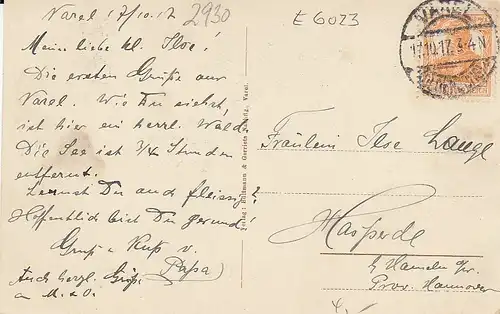 Varel 17/10.17
2930
E 6023
Meine liebe kl. Ilse!
Die ersten Grüße aus
Varel. Wie Du siehst,
ist hier ein herrl. Wald
Die See ist 3/4 Stunden
entfernt.
Lernst Du auch fleissig?
Hoffentlich bist Du gesund!
Gruß u Kuß v.
Papa
Auch herzl. Grüße
a M. & O.
Verlag: Bültmann & Gerriets Nachflg. Varel.
VAREL
17.10.17. 3-4 N
Fräulein Ilse Lange
Hasperde
b/ Hameln a/W.
Prov. Hannover